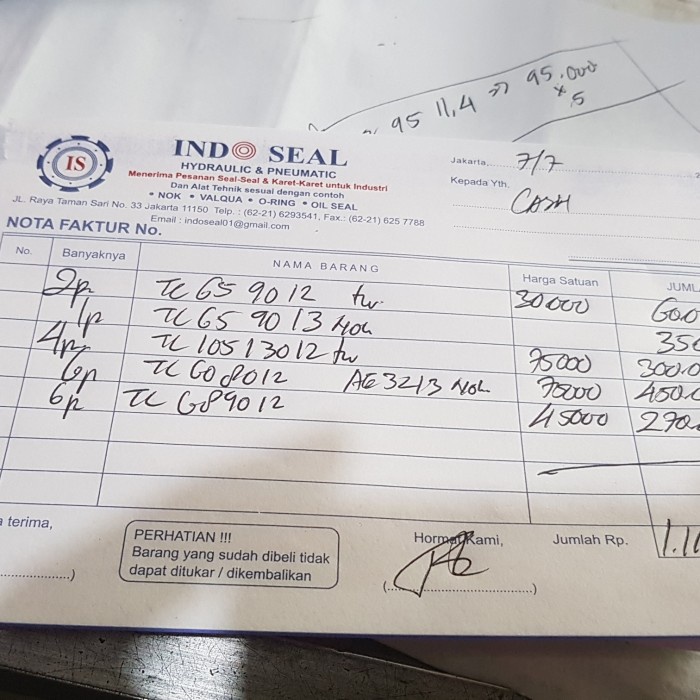 95 11,4 => 95.000
x 5
IS
INDO SEAL
HYDRAULIC & PNEUMATIC
Menerima Pesanan Seal-Seal & Karet-Karet untuk Industri
Dan Alat Tehnik sesuai dengan contoh
• NOK • VALQUA • O-RING • OIL SEAL
JL. Raya Taman Sari No. 33 Jakarta 11150 Telp. : (62-21) 6293541, Fax.: (62-21) 625 7788
Email : indoseal01@gmail.com
Jakarta, 7/7
Kepada Yth. CASH
NOTA FAKTUR No.
No. Banyaknya NAMA BARANG Harga Satuan JUML
2p TC 65 90 12 tw 30000 600
1p TC 65 90 13 Nok 350
4p TC 105 130 12 tw 75000 300.0
6p TC 60 80 12 AE3213 Nok 75000 450.
6p TC 68 90 12 45000 270.
terima,
PERHATIAN !!!
Barang yang sudah dibeli tidak
dapat ditukar / dikembalikan
Hormat Kami,
Jumlah Rp. 1.1